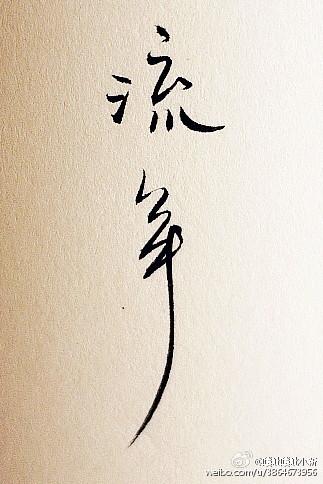 流年
weibo.com/u/3864673956